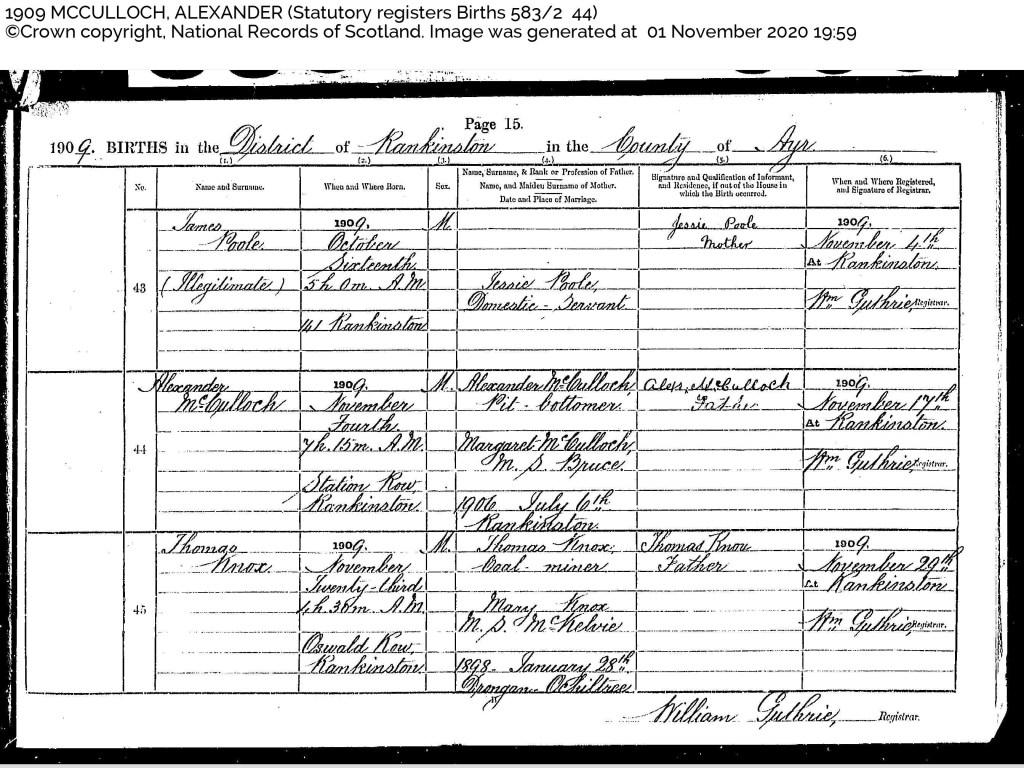 1909 MCCULLOCH, ALEXANDER (Statutory registers Births 583/2 44)
©Crown copyright, National Records of Scotland. Image was generated at 01 November 2020 19:59
Page 15.
1909. BIRTHS in the District of Rankinston in the County of Ayr
(1.) (2.) (3.) (4.) (5.) (6.)
No.
Name and Surname.
When and Where Born.
Sex.
Name, Surname, & Rank or Profession of Father.
Name, and Maiden Surname of Mother.
Date and Place of Marriage.
Signature and Qualification of Informant,
and Residence, if out of the House in
which the Birth occurred.
When and Where Registered,
and Signature of Registrar.
43
James
Poole
(Illegitimate)
1909.
October
Sixteenth
5h. 0m. A.M.
141 Rankinston
M.
Jessie Poole,
Domestic-Servant
Jessie Poole
Mother
1909.
November 4th
At Rankinston
Wm Guthrie, Registrar.
44
Alexander
McCulloch
1909.
November
Fourth
7h. 15m. A.M.
Station Row,
Rankinston
M.
Alexander McCulloch,
Pit-bottomer.
Margaret McCulloch,
M. S. Bruce
1906 July 6th
Rankinston
Alexr. McCulloch
Father
1909.
November 17th
At Rankinston.
Wm Guthrie, Registrar.
45
Thomas
Knox
1909.
November
Twenty-third
4h. 36m. A.M.
Oswald Row,
Rankinston
M.
Thomas Knox,
Coal-miner
Mary Knox
M. S. McKelvie
1898 January 28th
Drongan Ochiltree
Thomas Knox
Father
1909.
November 29th
At Rankinston
Wm Guthrie, Registrar.
William Guthrie, Registrar.